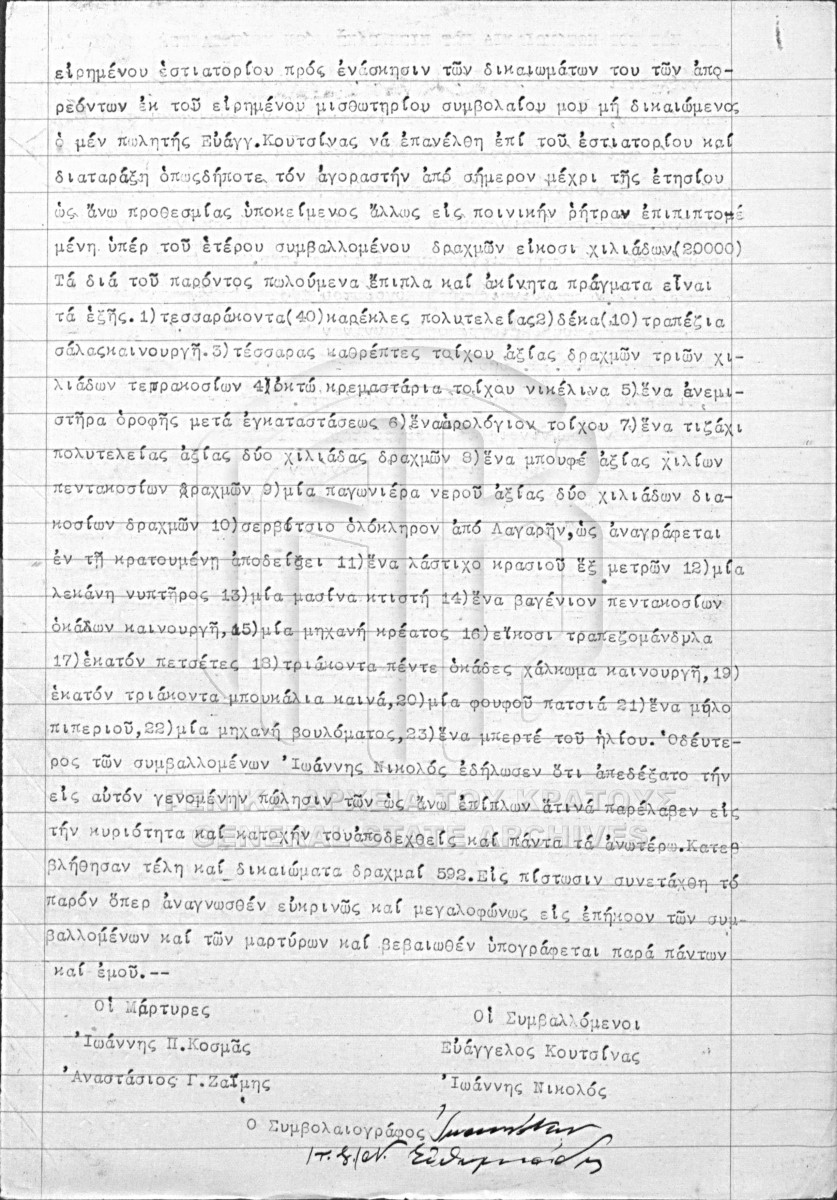 εἰρημένου ἑστιατορίου πρός ἐνάσκησιν τῶν δικαιωμάτων του τῶν ἀπο-
ρεόντων ἐκ τοῦ εἰρημένου μισθωτηρίου συμβολαίου μου μή δικαιώμενος
ὁ μέν πωλητής Εὐάγγ.Κουτσίνας νά ἐπανέλθη ἐπί τοῦ ἑστιατορίου καί
διαταράξη ὁπωςδήποτε τόν ἀγοραστήν ἀπό σήμερον μέχρι τῆς ἐτησίου
ὡς ἄνω προθεσμίας ὑποκείμενος ἄλλως εἰς ποινικήν ρήτραν ἐπιπιπτομέ
μένη ὑπέρ τοῦ ἑτέρου συμβαλλομένου δραχμῶν εἴκοσι χιλιάδων(20000)
Τά διά τοῦ παρόντος πωλούμενα ἔπιπλα καί ἀκίνητα πράγματα εἶναι
τά ἑξῆς.1)τεσσαράκοντα(40)καρέκλες πολυτελείας2)δέκα(10)τραπέζια
σάλαςκαινουργῆ.3)τέσσαρας καθρέπτες τοίχου ἀξίας δραχμῶν τριῶν χι-
λιάδων τετρακοσίων 4)ὀκτώ κρεμαστάρια τοίχου νικέλινα 5)ἕνα ἀνεμι-
στῆρα ὀροφῆς μετά ἐγκαταστάσεως 6)ἕναὡρολόγιον τοίχου 7)ἕνα τιζάχι
πολυτελείας ἀξίας δύο χιλιάδας δραχμῶν 8)ἕνα μπουφέ ἀξίας χιλίων
πεντακοσίων δραχμῶν 9)μία παγωνιέρα νεροῦ ἀξίας δύο χιλιάδων δια-
κοσίων δραχμῶν 10)σερβίτσιο ὁλόκληρον ἀπό Λαγαρῆν,ὡς ἀναγράφεται
ἐν τῇ κρατουμένη ἀποδείξει 11)ἕνα λάστιχο κρασιοῦ ἕξ μετρῶν 12)μία
λεκάνη νυπτῆρος 13)μία μασίνα κτιστή 14)ἕνα βαγένιον πεντακοσίων
ὀκάδων καινουργῆ,15)μία μηχανή κρέατος 16)εἴκοσι τραπεζομάνδυλα
17)ἑκατόν πετσέτες 18)τριάκοντα πέντε ὀκάδες χάλκωμα καινουργῆ,19)
ἑκατόν τριάκοντα μπουκάλια καινά,20)μία φουφοῦ πατσιά 21)ἕνα μῆλο
πιπεριοῦ,22)μία μηχανή βουλόματος,23)ἕνα μπερτέ τοῦ ἡλίου.Ὁδέυτε-
ρος τῶν συμβαλλομένων Ἰωάννης Νικολός ἐδήλωσεν ὅτι ἀπεδέξατο τήν
εἰς αὐτόν γενομένην πώλησιν τῶν ὡς ἄνω ἐπίπλων ἅτινά παρέλαβεν εἰς
τήν κυριότητα καί κατοχήν τουἀποδεχθείς καί πάντα τά ἀνωτέρω.Κατεβ
βλήθησαν τέλη καί δικαιώματα δραχμαί 592.Εἰς πίστωσιν συνετάχθη τό
παρόν ὅπερ ἀναγνωσθέν εὐκρινῶς καί μεγαλοφώνως εἰς ἐπήκοον τῶν συμ-
βαλλομένων καί τῶν μαρτύρων καί βεβαιωθέν ὑπογράφεται παρά πάντων
καί ἐμοῦ.--
Οἱ Μάρτυρες
Οἱ Συμβαλλόμενοι
Ἰωάννης Π.Κοσμᾶς
Εὐάγγελος Κουτσίνας
Ἀναστάσιος Γ.Ζαΐμης
Ἰωάννης Νικολός
Ο Συμβολαιογράφος
ΓΕΝΙΚΑ ΑΡΧΕΙΑ ΤΟΥ ΚΡΑΤΟΥΣ
GENERAL STATE ARCHIVES